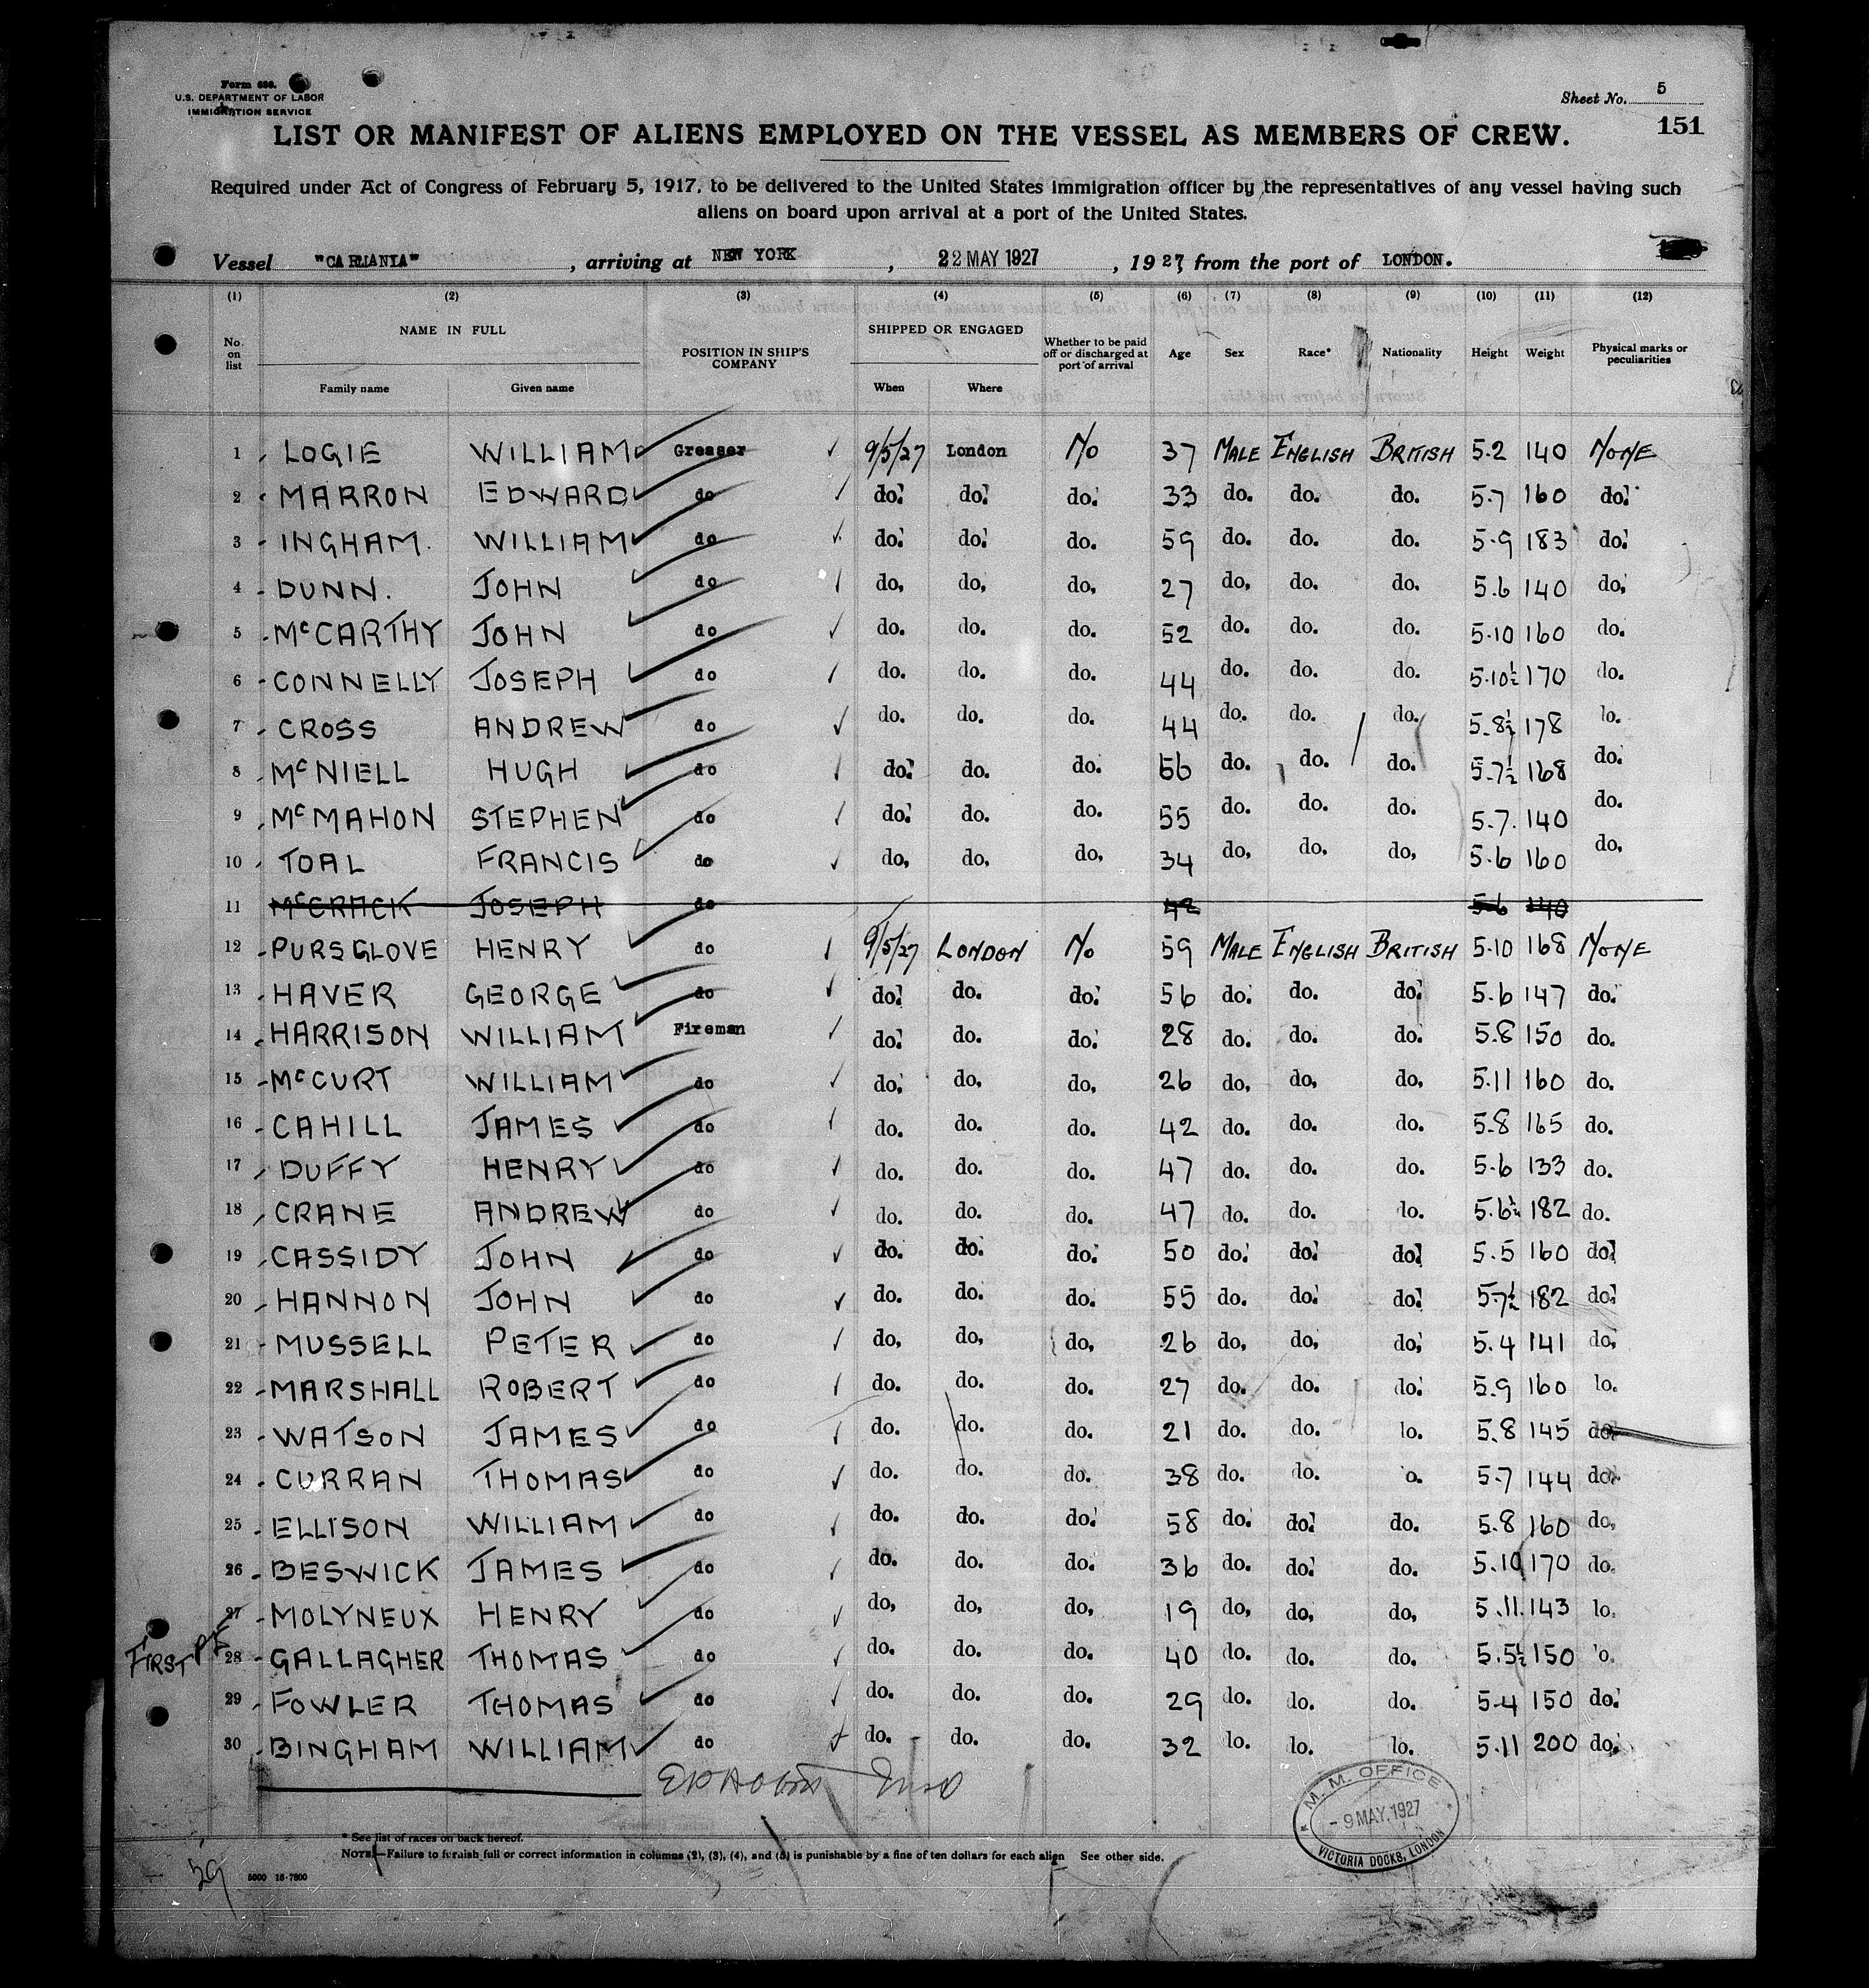 Form 680.
U.S. DEPARTMENT OF LABOR
IMMIGRATION SERVICE
Sheet No. 5
151
LIST OR MANIFEST OF ALIENS EMPLOYED ON THE VESSEL AS MEMBERS OF CREW.
Required under Act of Congress of February 5, 1917, to be delivered to the United States immigration officer by the representatives of any vessel having such
aliens on board upon arrival at a port of the United States.
Vessel "CARMANIA", arriving at NEW YORK, 22 MAY 1927, 1927, from the port of LONDON.
(1) (2) (3) (4) (5) (6) (7) (8) (9) (10) (11) (12)
No. on list NAME IN FULL POSITION IN SHIP'S COMPANY SHIPPED OR ENGAGED Whether to be paid off or discharged at port of arrival Age Sex Race* Nationality Height Weight Physical marks or peculiarities
Family name Given name When Where
1 LOGIE WILLIAM Greaser 9/5/27 London No 37 MALE ENGLISH BRITISH 5.2 140 NONE
2 MARRON EDWARD do do. do. do. 33 do. do. do. 5.7 160 do.
3 INGHAM. WILLIAM do do. do. do. 59 do. do. do. 5.9 183 do.
4 DUNN. JOHN do do, do, do, 27 do, do. do. 5.6 140 do,
5 McCARTHY JOHN do do. do. do. 52 do. do. do. 5.10 160 do.
6 CONNELLY JOSEPH do do. do. do. 44 do. do. do. 5.10½ 170 do.
7 CROSS ANDREW do do. do. do. 44 do. do. do. 5.8½ 178 lo.
8 McNIELL HUGH do do. do. do. 56 do. do. do. 5.7½ 168 do.
9 McMAHON STEPHEN do do. do. do. 55 do. do. do. 5.7. 140 do.
10 TOAL FRANCIS do do, do, do, 34 do, do, do, 5.6 160 do,
11 McCRACK JOSEPH do 42 5.6 140
12 PURSGLOVE HENRY do 9/5/27 LONDON No 59 MALE ENGLISH BRITISH 5.10 168 NONE
13 HAVER GEORGE do do. do. do. 56 do. do. do. 5.6 147 do.
14 HARRISON WILLIAM Fireman do. do. do. 28 do. do. do. 5.8 150 do.
15 McCURT WILLIAM do do, do, do, 26 do, do, do, 5.11 160 do.
16 CAHILL JAMES do do. do. do. 42 do. do. do. 5.8 165 do.
17 DUFFY HENRY do do. do. do. 47 do. do. do. 5.6 133 do.
18 CRANE ANDREW do do. do. do. 47 do. do. lo. 5.6½ 182 do.
19 CASSIDY JOHN do do. do. do. 50 do. do. do. 5.5 160 do.
20 HANNON JOHN do do. do. do. 55 do. do. do. 5.7½ 182 do.
21 MUSSELL PETER do do, do, do, 26 do, do, do, 5.4 141 do,
22 MARSHALL ROBERT do do. do. do. 27 do. do. do. 5.9 160 lo.
23 WATSON JAMES do do. do. do. 21 do. do. lo. 5.8 145 do.
24 CURRAN THOMAS do do. do. do. 38 do. do. o. 5.7 144 do.
25 ELLISON WILLIAM do do. do. do. 58 do. do. do. 5.8 160 do.
26 BESWICK JAMES do do. do. do. 36 do. do. do. 5.10 170 do.
27 MOLYNEUX HENRY do do, do, do, 19 do, do, do, 5.11. 143 lo.
FIRST
28 GALLAGHER THOMAS do do. do. do. 40 do. do. do. 5.5½ 150 o.
29 FOWLER THOMAS do do. do. do. 29 do. do. do. 5.4 150 do.
30 BINGHAM WILLIAM do do. do. do. 32 lo. lo. lo. 5.11 200 do.
M. M. OFFICE
- 9 MAY. 1927
VICTORIA DOCKS, LONDON
* See list of races on back hereof.
NOTE.—Failure to furnish full or correct information in columns (2), (3), (4), and (5) is punishable by a fine of ten dollars for each alien See other side.
59